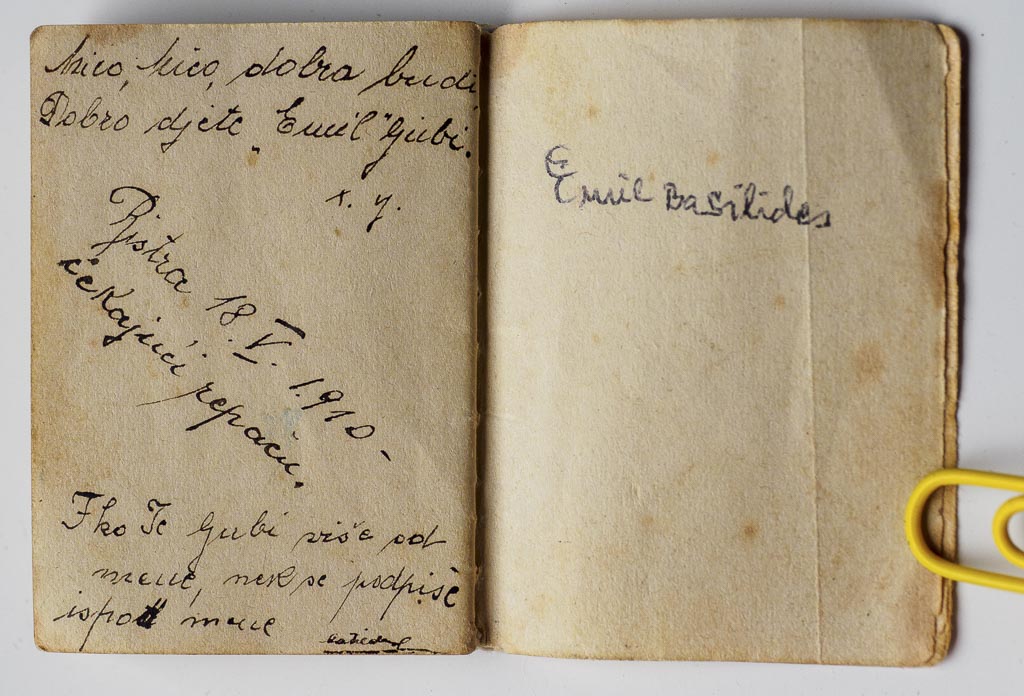 Mico, Mico, dobra budi,
Dobro djete „Emil" Gubi.
x. y.
Bistra 18. V. 1910 -
čekajući repaću.
Tko Te ljubi više od
mene, nek se podpiše
ispod mene
Emil Basilides